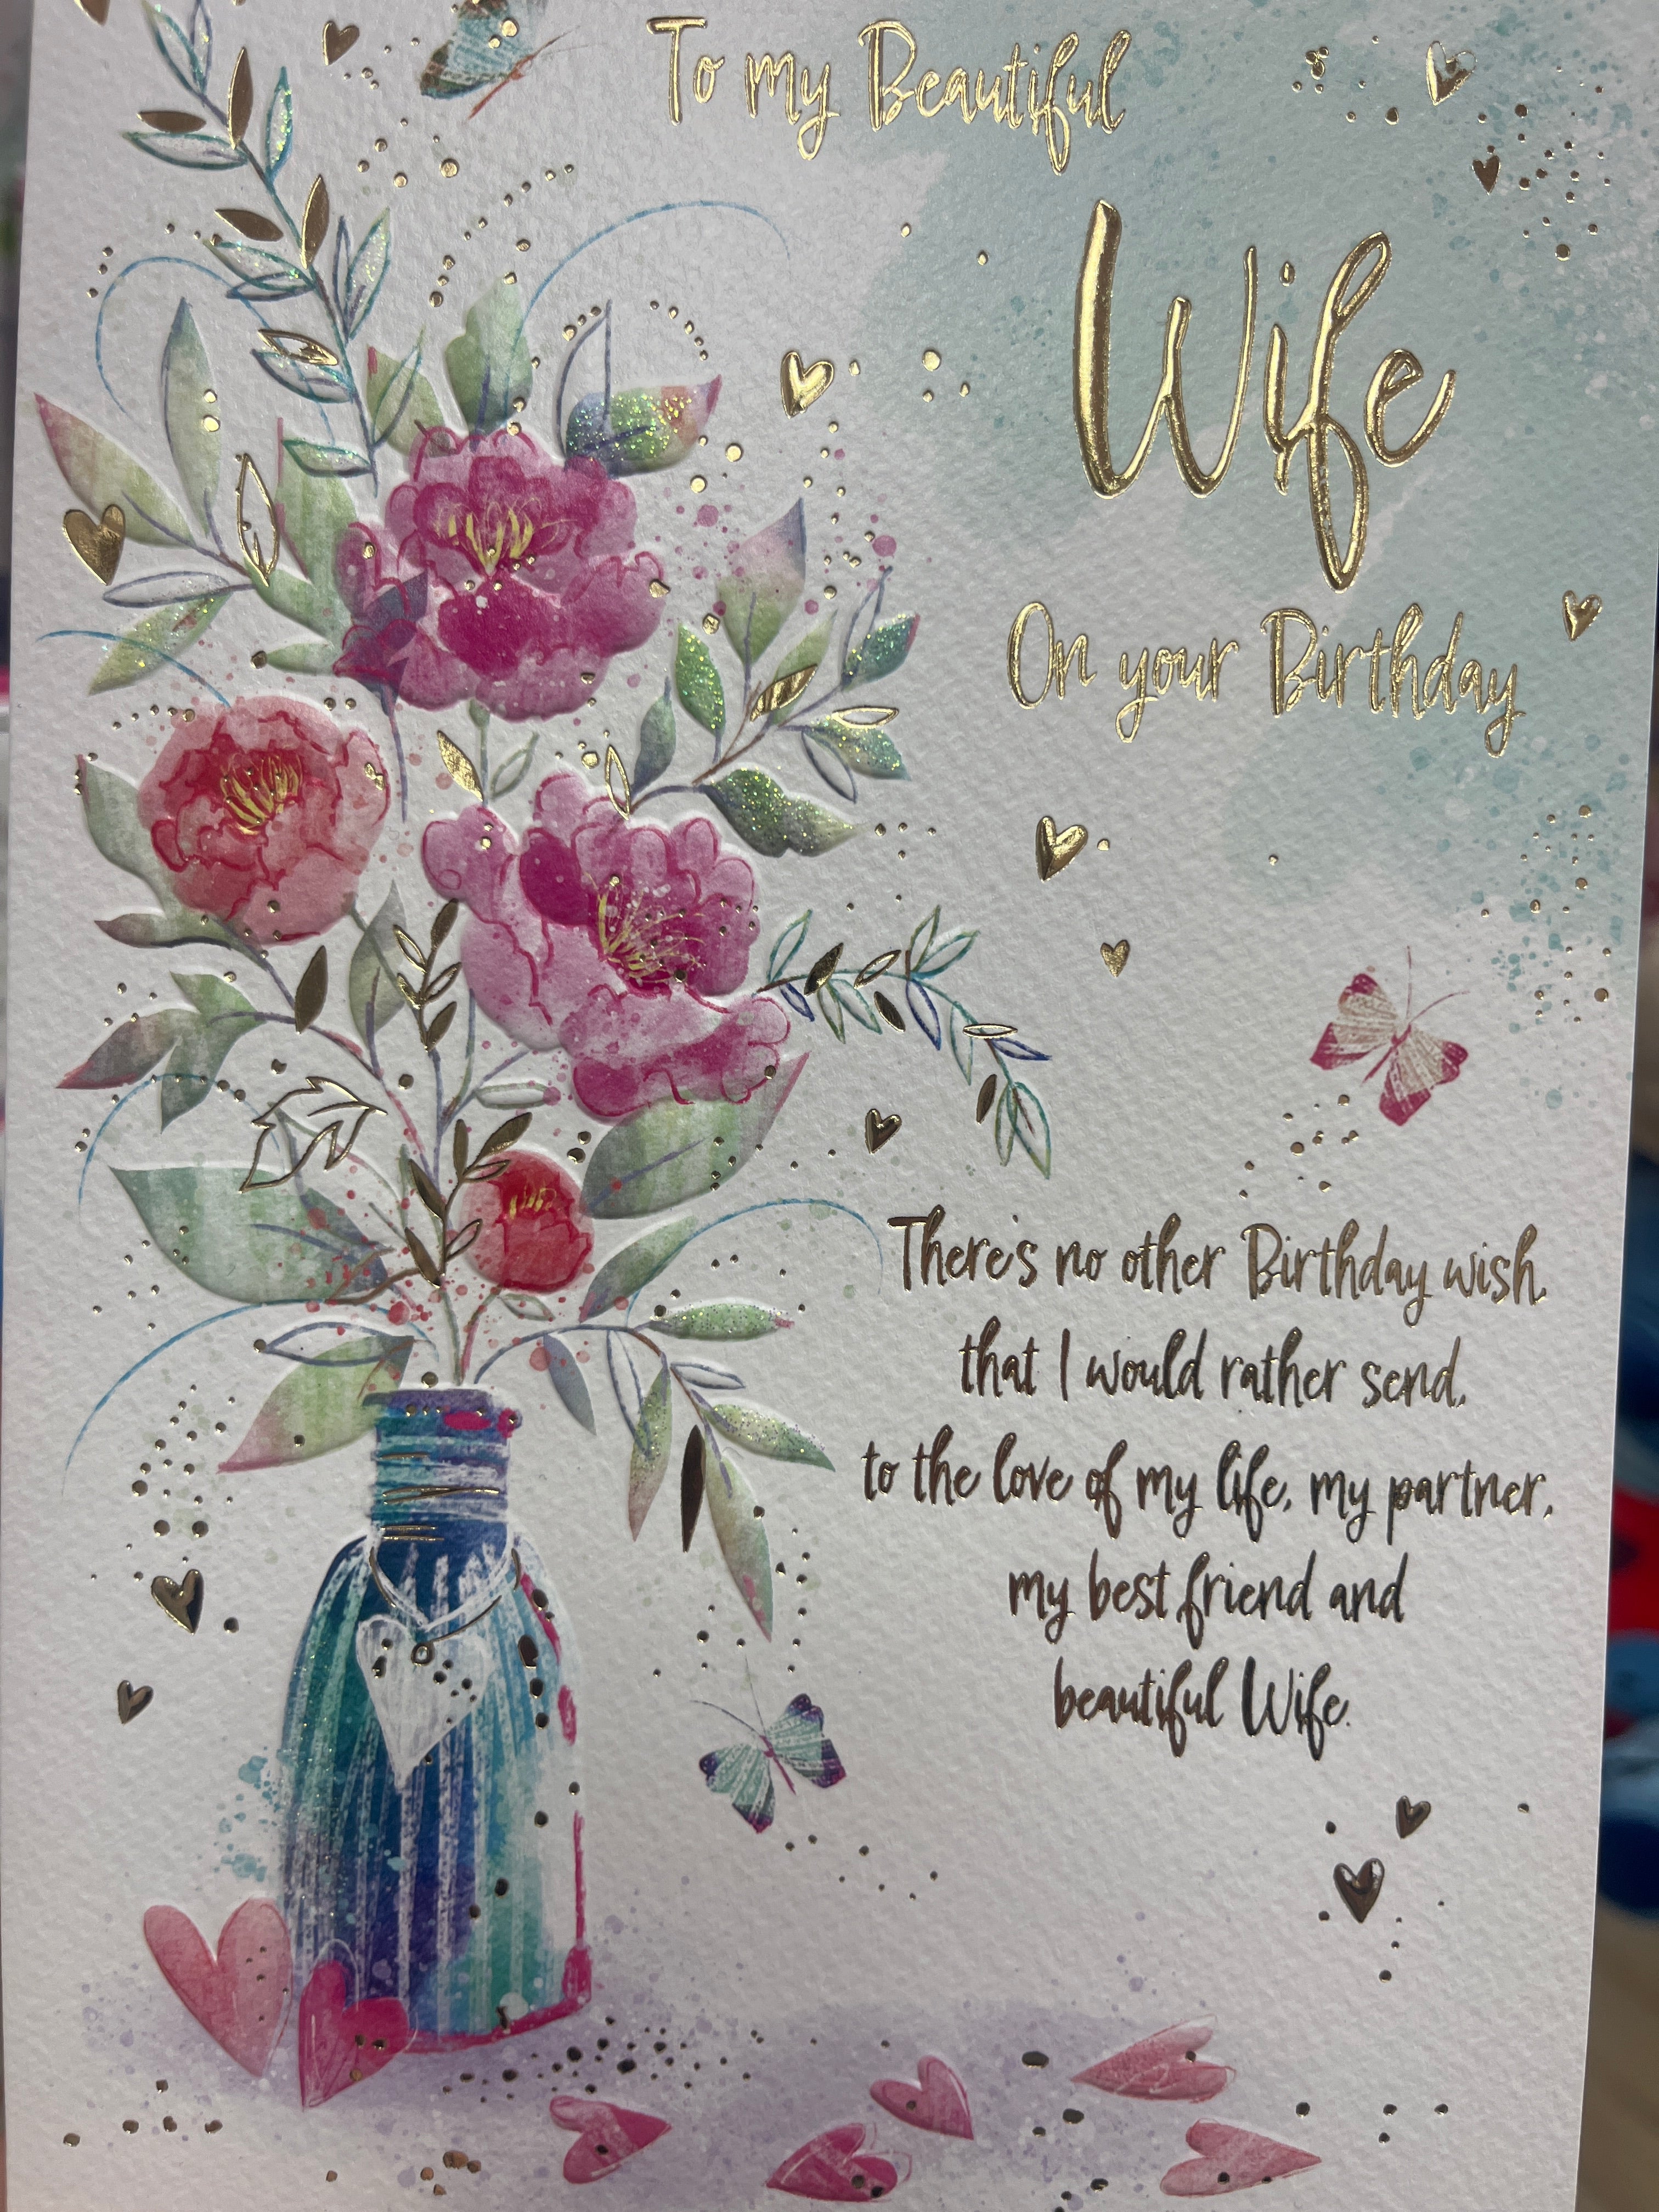 To my Beautiful
Wife
On your Birthday
There's no other Birthday wish,
that I would rather send,
to the love of my life, my partner,
my best friend and
beautiful Wife.